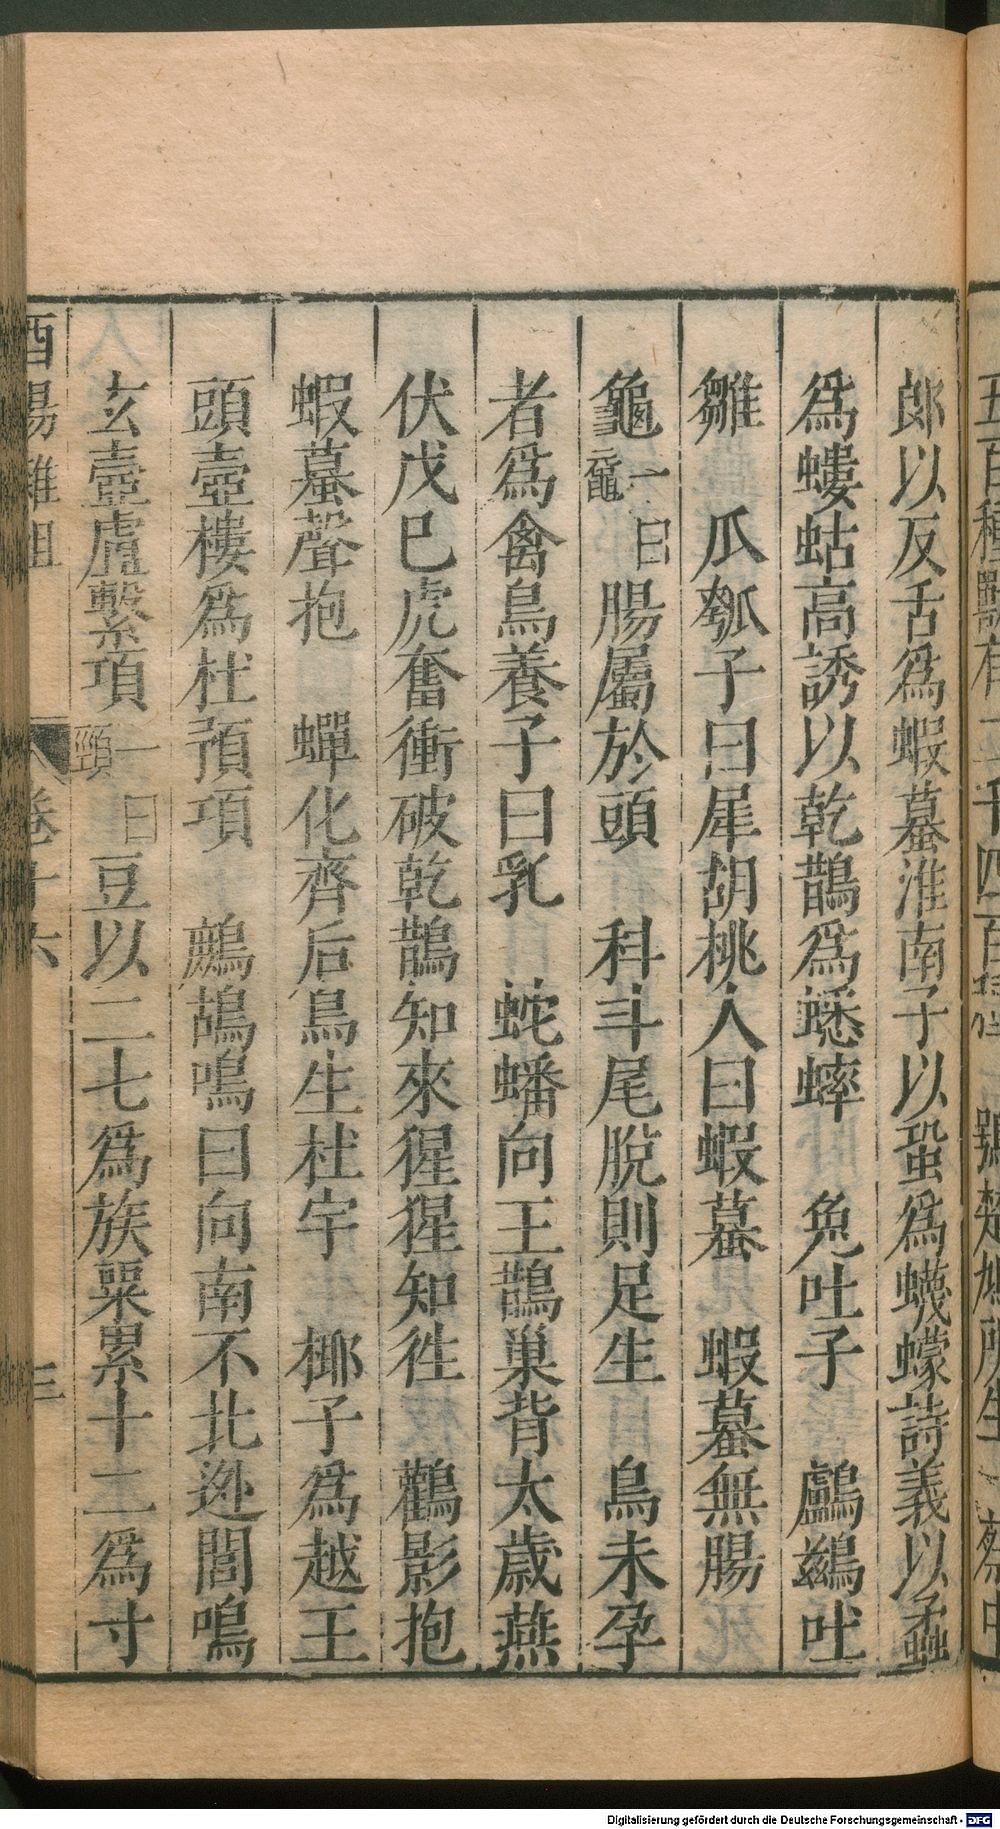 郎以反舌爲蝦蟇淮南子以蛩爲蠛蠓詩義以蟊
爲螻蛄高誘以乾鵲爲蟋蟀　兔吐子　鸕鷀吐
雛　瓜瓠子曰犀胡桃人曰蝦蟇　蝦蟇無腸
龜一曰黿腸屬於頭　科斗尾脫則足生　鳥未孕
者爲禽鳥養子曰乳　蛇蟠向王鵲巢背太歲燕
伏戊巳虎奮衝破乾鵲知來猩猩知徃　鸛影抱
蝦蟇聲抱　蟬化齊后鳥生杜宇　椰子爲越王
頭壺樓爲杜預項　鷓鴣鳴曰向南不北逃閭鳴
玄壺盧繫項一曰頸豆以二七爲族粟累十二爲寸
酉陽雜俎　卷十六　三
Digitalisierung gefördert durch die Deutsche Forschungsgemeinschaft - DFG